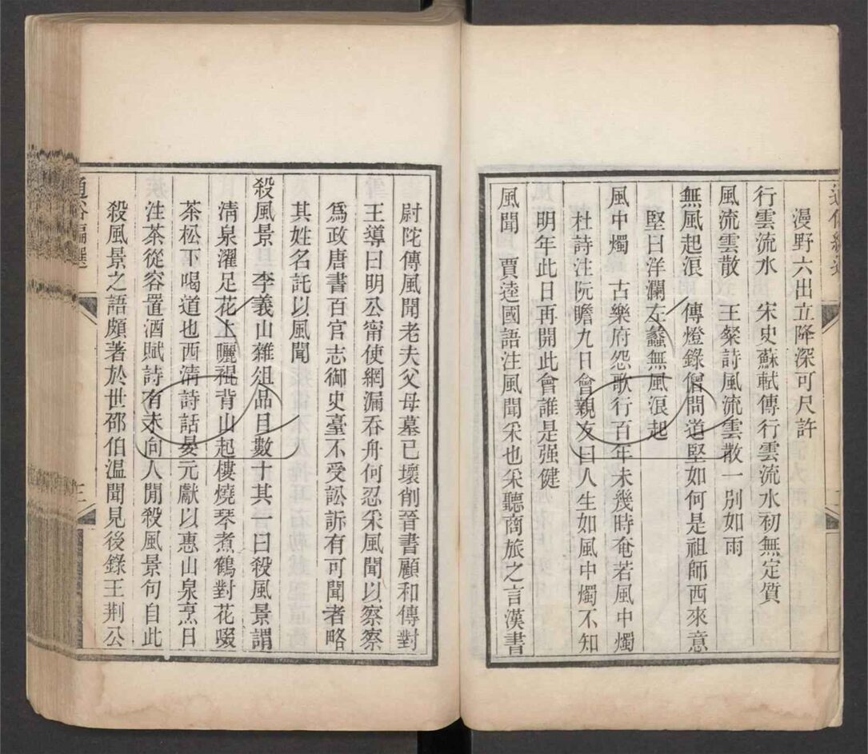 漫野六出立降深可尺許
行雲流水　宋史蘇軾傳行雲流水初無定質
風流雲散　王粲詩風流雲散一別如雨
無風起浪　傳燈錄僧問道堅如何是祖師西來意
堅曰洋瀾左蠡無風浪起
風中燭　古樂府怨歌行百年未幾時奄若風中燭
杜詩注阮瞻九日會親友曰人生如風中燭不知
明年此日再開此會誰是强健
風聞　賈逵國語注風聞采也采聽商旅之言漢書
尉陀傳風聞老夫父母墓已壞削晉書顧和傳對
王導曰明公甯使網漏吞舟何忍采風聞以察察
爲政唐書百官志御史臺不受訟訴有可聞者略
其姓名託以風聞
殺風景　李義山雜俎品目數十其一曰殺風景謂
清泉濯足花上曬裩背山起樓燒琴煮鶴對花啜
茶松下喝道也西清詩話晏元獻以惠山泉烹日
注茶從容置酒賦詩有未向人閒殺風景句自此
殺風景之語頗著於世邵伯溫聞見後錄王荆公
通俗編選